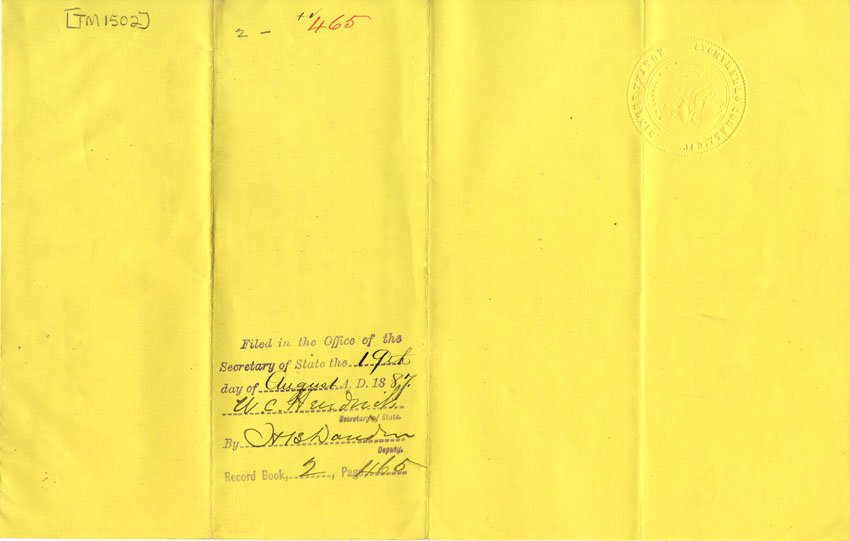 [TM1502]
2 - No/ 465
Filed in the Office of the
Secretary of State the 19th
day of August A. D. 1887.
W. C. Hendricks
Secretary of State.
By
Deputy.
Record Book, 2, Page 465